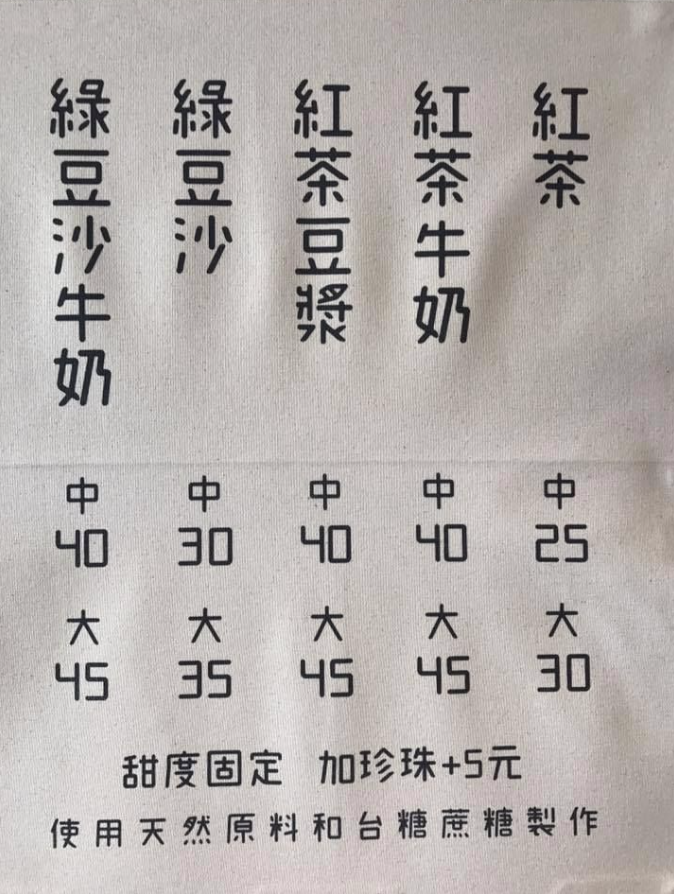 紅茶
紅茶牛奶
紅茶豆漿
綠豆沙
綠豆沙牛奶
中 中 中 中 中
40 30 40 40 25
大 大 大 大 大
45 35 45 45 30
甜度固定 加珍珠+5元
使用天然原料和台糖蔗糖製作